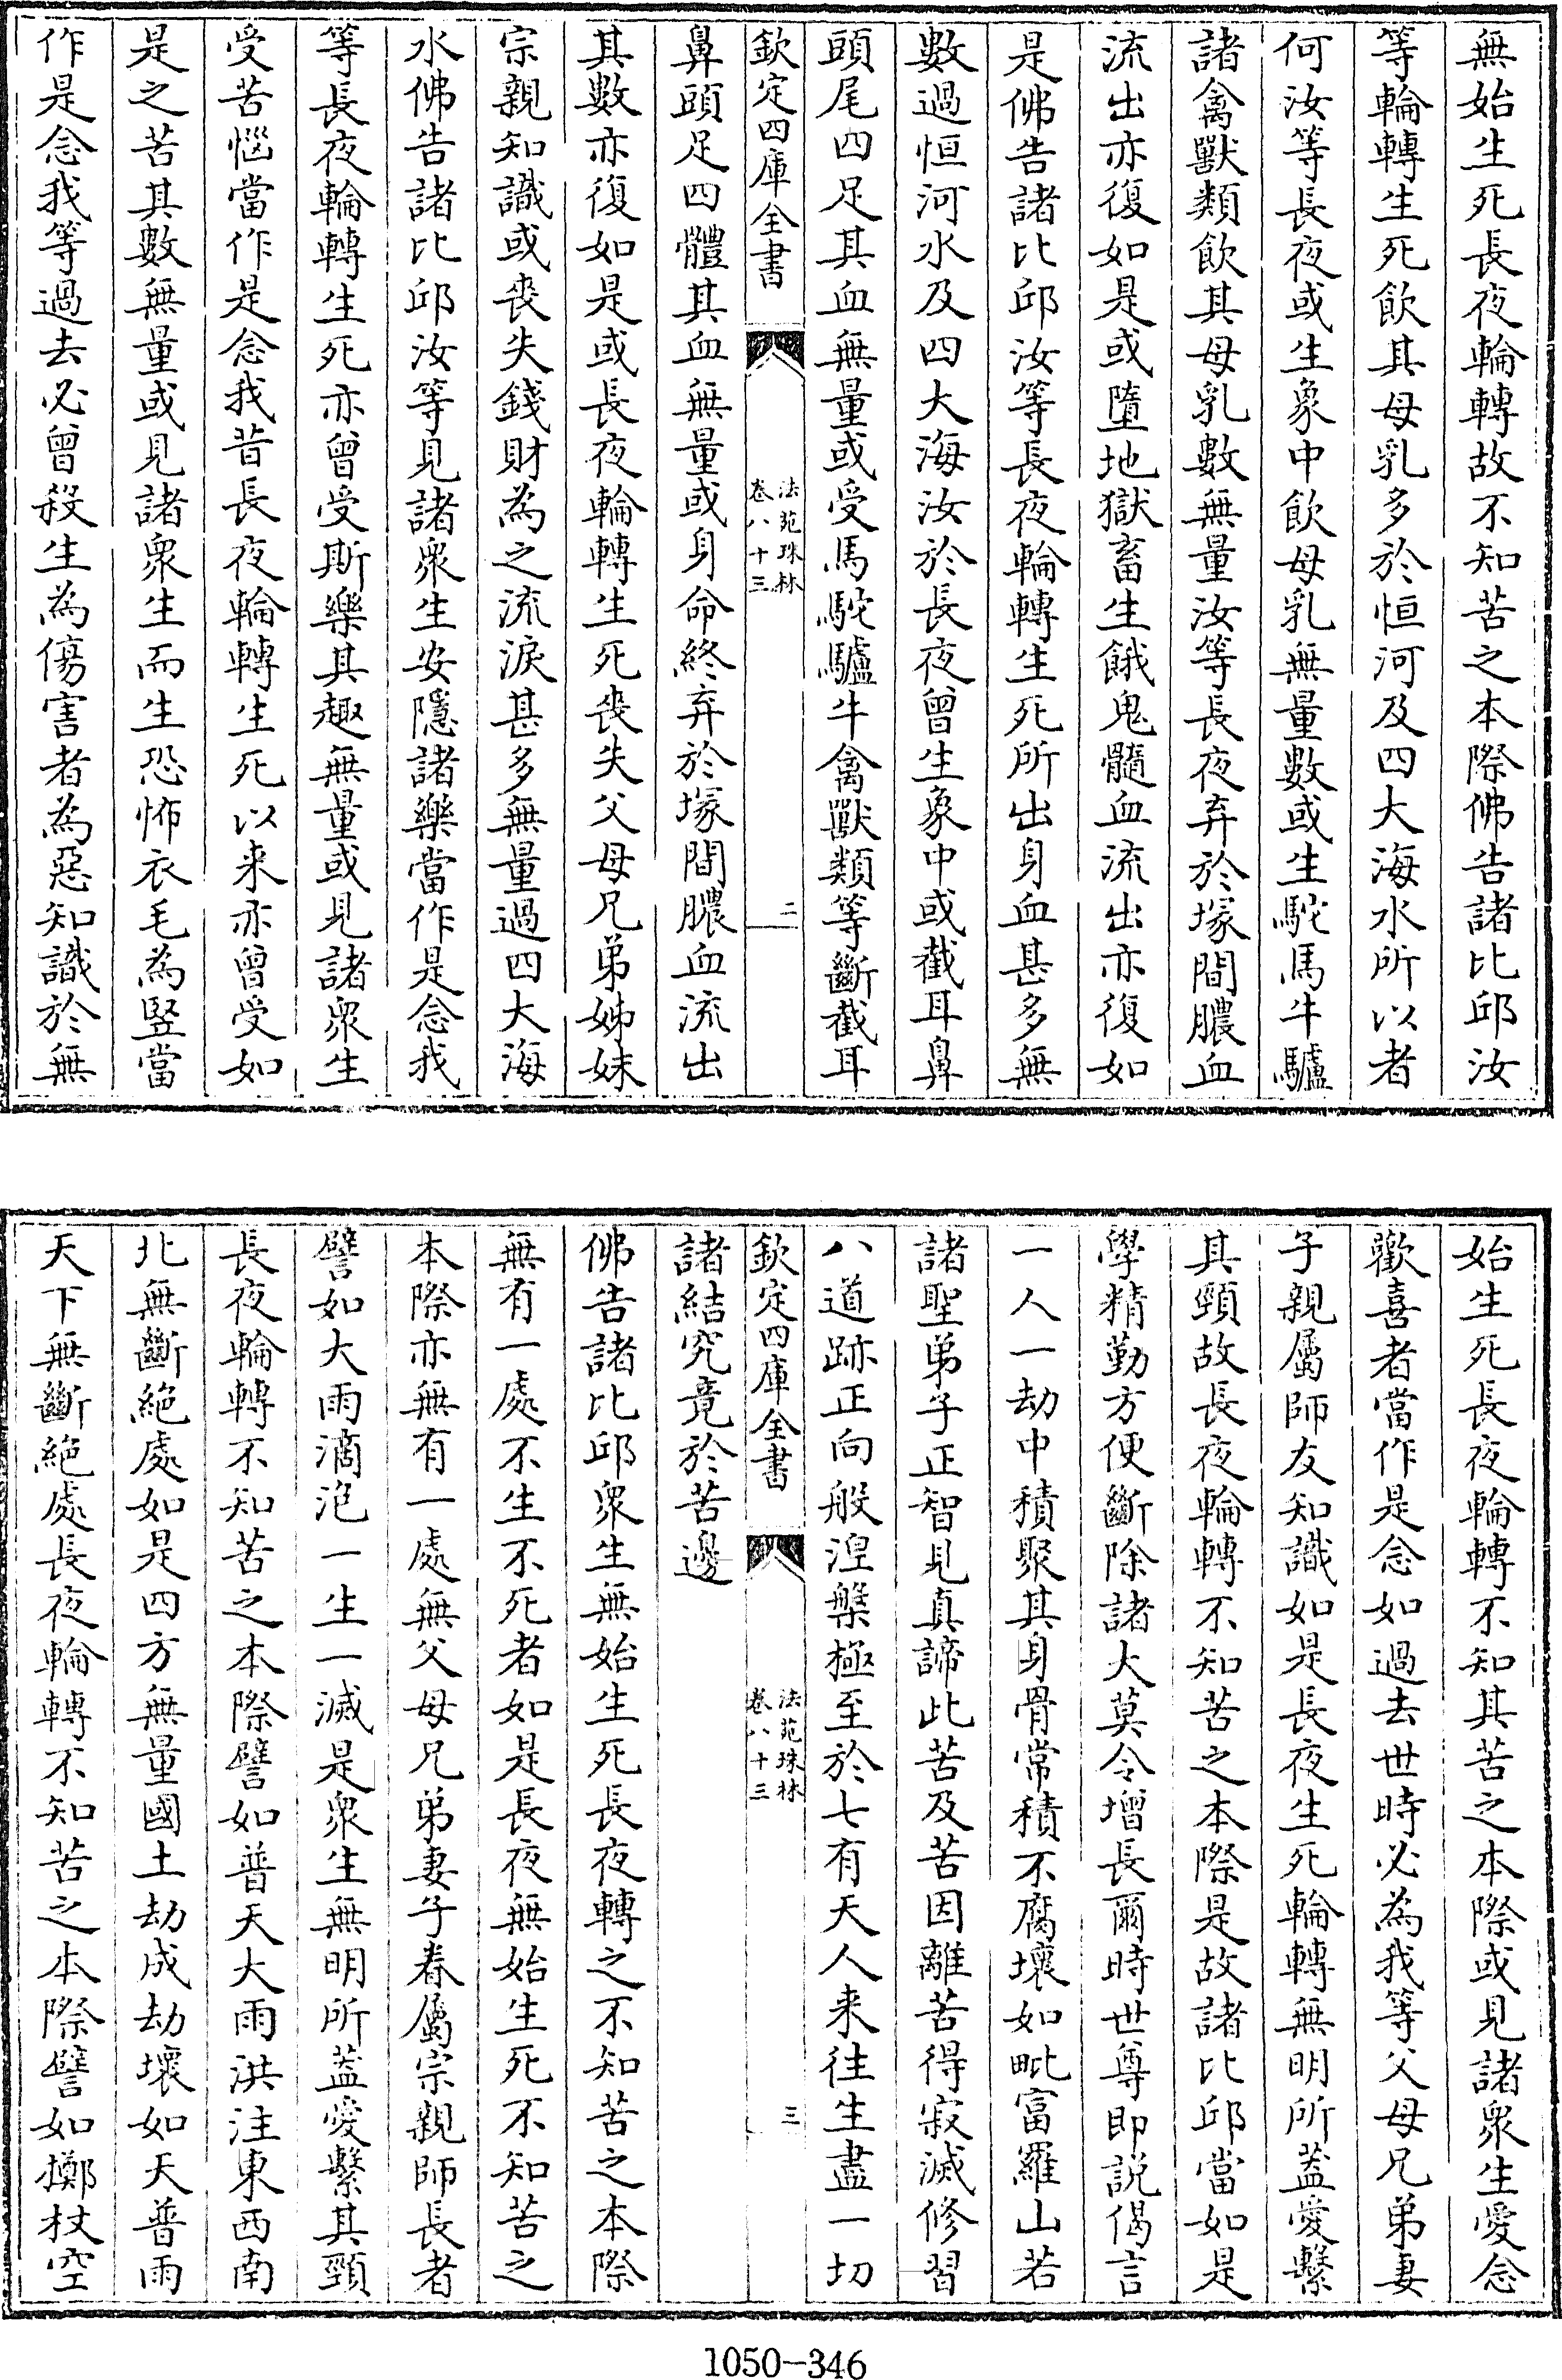 無始生死長夜輪轉故不知苦之本際佛告諸比邱汝
等輪轉生死飲其母乳多於恒河及四大海水所以者
何汝等長夜或生象中飲母乳無量數或生駝馬牛驢
諸禽獸類飲其母乳數無量汝等長夜弃於塚間膿血
流出亦復如是或墮地獄畜生餓鬼髓血流出亦復如
是佛告諸比邱汝等長夜輪轉生死所出身血甚多無
數過恒河水及四大海汝於長夜曾生象中或截耳鼻
頭尾四足其血無量或受馬駝驢牛禽獸類等斷截耳
欽定四庫全書
法苑珠林
卷八十三
二
鼻頭足四體其血無量或身命終弃於塚間膿血流出
其數亦復如是或長夜輪轉生死丧失父母兄弟姊妹
宗親知識或丧失錢財為之流淚甚多無量過四大海
水佛告諸比邱汝等見諸衆生安隱諸樂當作是念我
等長夜輪轉生死亦曾受斯樂其趣無量或見諸衆生
受苦惱當作是念我昔長夜輪轉生死以来亦曾受如
是之苦其數無量或見諸衆生而生恐怖衣毛為竪當
作是念我等過去必曾殺生為傷害者為惡知識於無
始生死長夜輪轉不知其苦之本際或見諸衆生愛念
歡喜者當作是念如過去世時必為我等父母兄弟妻
子親屬師友知識如是長夜生死輪轉無明所葢愛繫
其頸故長夜輪轉不知苦之本際是故諸比邱當如是
學精勤方便斷除諸大莫令增長爾時世尊即説偈言
一人一劫中積聚其身骨常積不腐壞如毗富羅山若
諸聖弟子正智見真諦此苦及苦因離苦得寂滅修習
八道跡正向般涅槃極至於七有天人来往生盡一切
欽定四庫全書
法苑珠林
卷八十三
三
諸結究竟於苦邊
佛告諸比邱衆生無始生死長夜轉之不知苦之本際
無有一處不生不死者如是長夜無始生死不知苦之
本際亦無有一處無父母兄弟妻子眷屬宗親師長者
譬如大雨滴泡一生一滅是衆生無明所葢愛繫其頸
長夜輪轉不知苦之本際譬如普天大雨洪注東西南
北無斷絶處如是四方無量國土劫成劫壞如天普雨
天下無斷絶處長夜輪轉不知苦之本際譬如擲杖空
1050-346